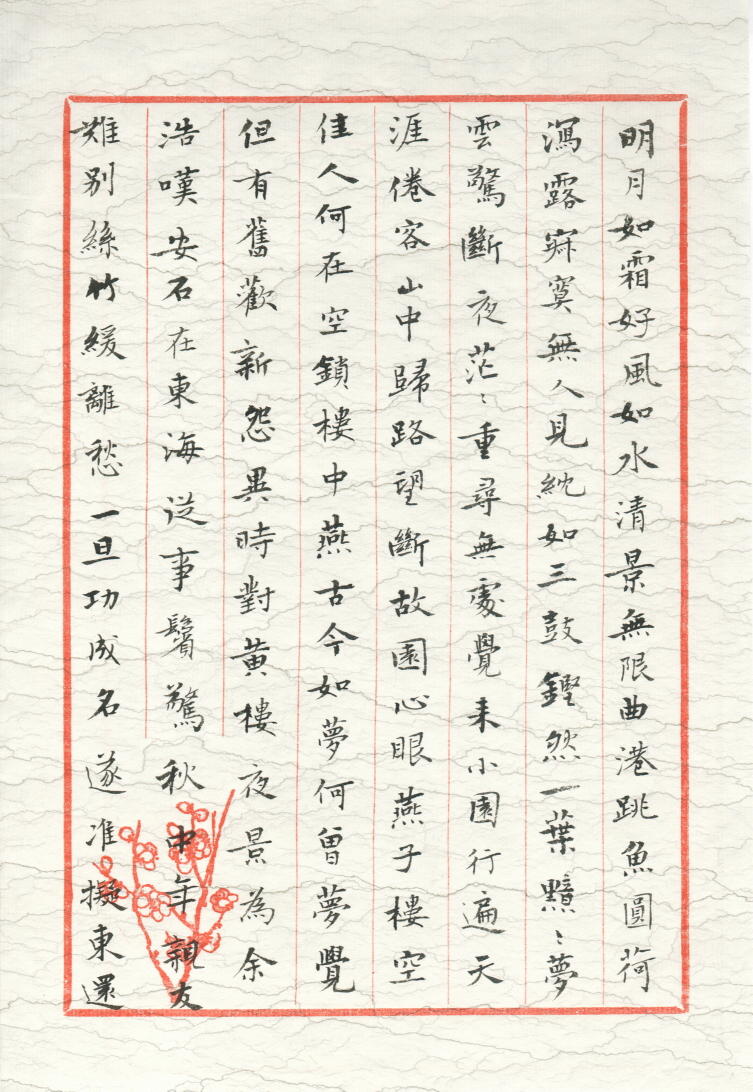 明月如霜好風如水清景無限曲港跳魚圓荷
瀉露寂寞無人見紞如三鼓鏗然一葉黯〻夢
雲驚斷夜茫〻重尋無處覺来小園行遍天
涯倦客山中歸路望斷故園心眼燕子樓空
佳人何在空鎖樓中燕古今如夢何曾夢覺
但有舊歡新怨異時對黃樓夜景為余
浩嘆安石在東海從事鬢驚秋中年親友
難別絲竹緩離愁一旦功成名遂准擬東還